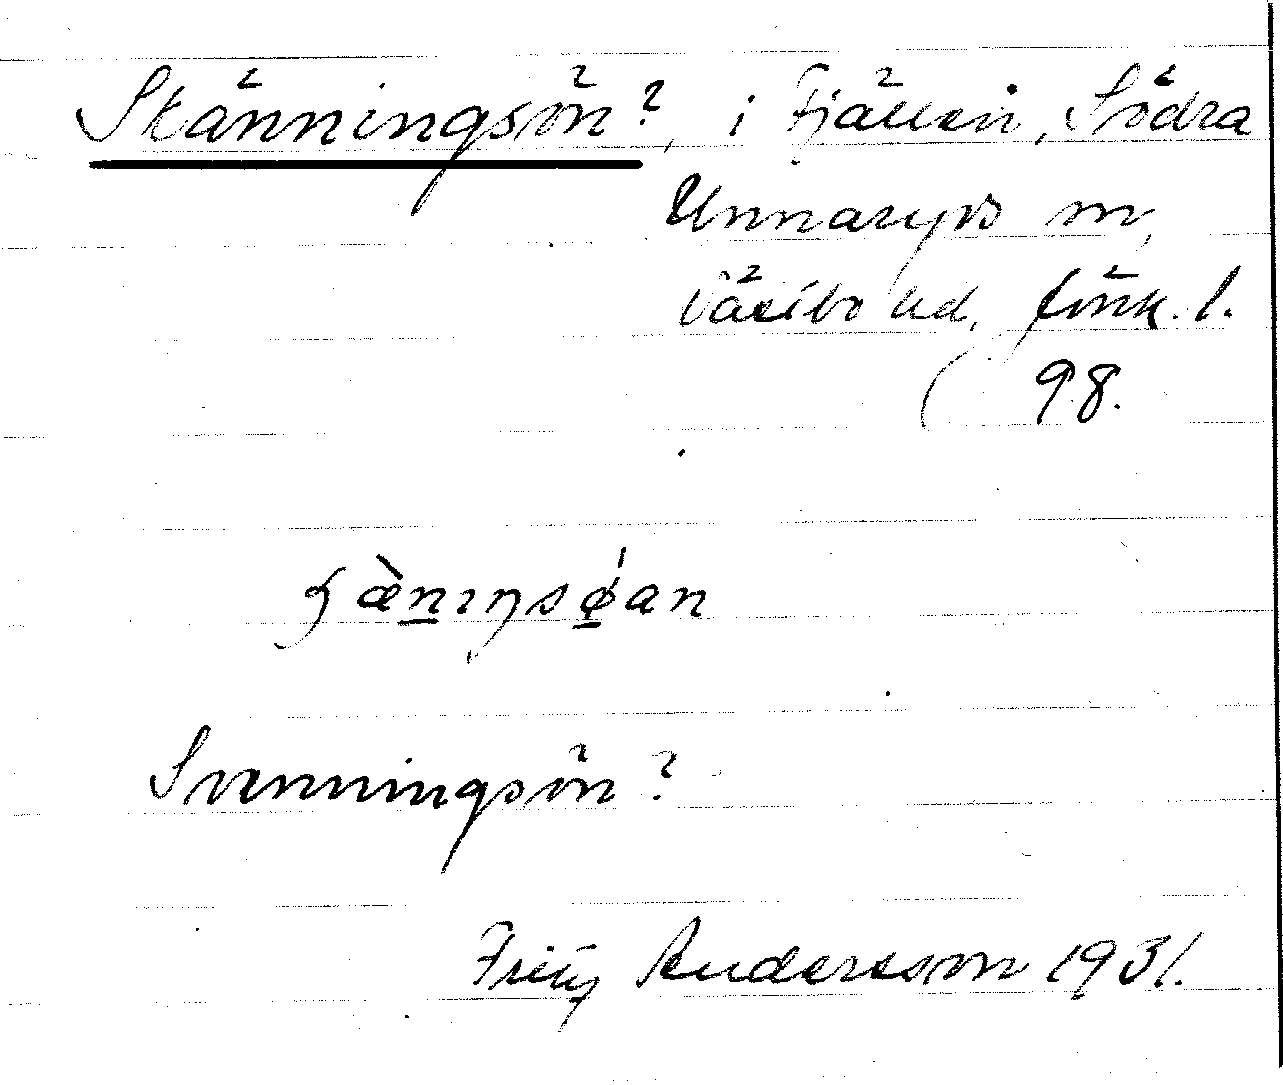 Skänningsön?, i Fjällen, Södra
Unnaryds sn,
Västbo hd, Jönk. l.
98.
ɧæ̀nıŋsǿan
Svenningsön?
Fritz Andersson 1931.